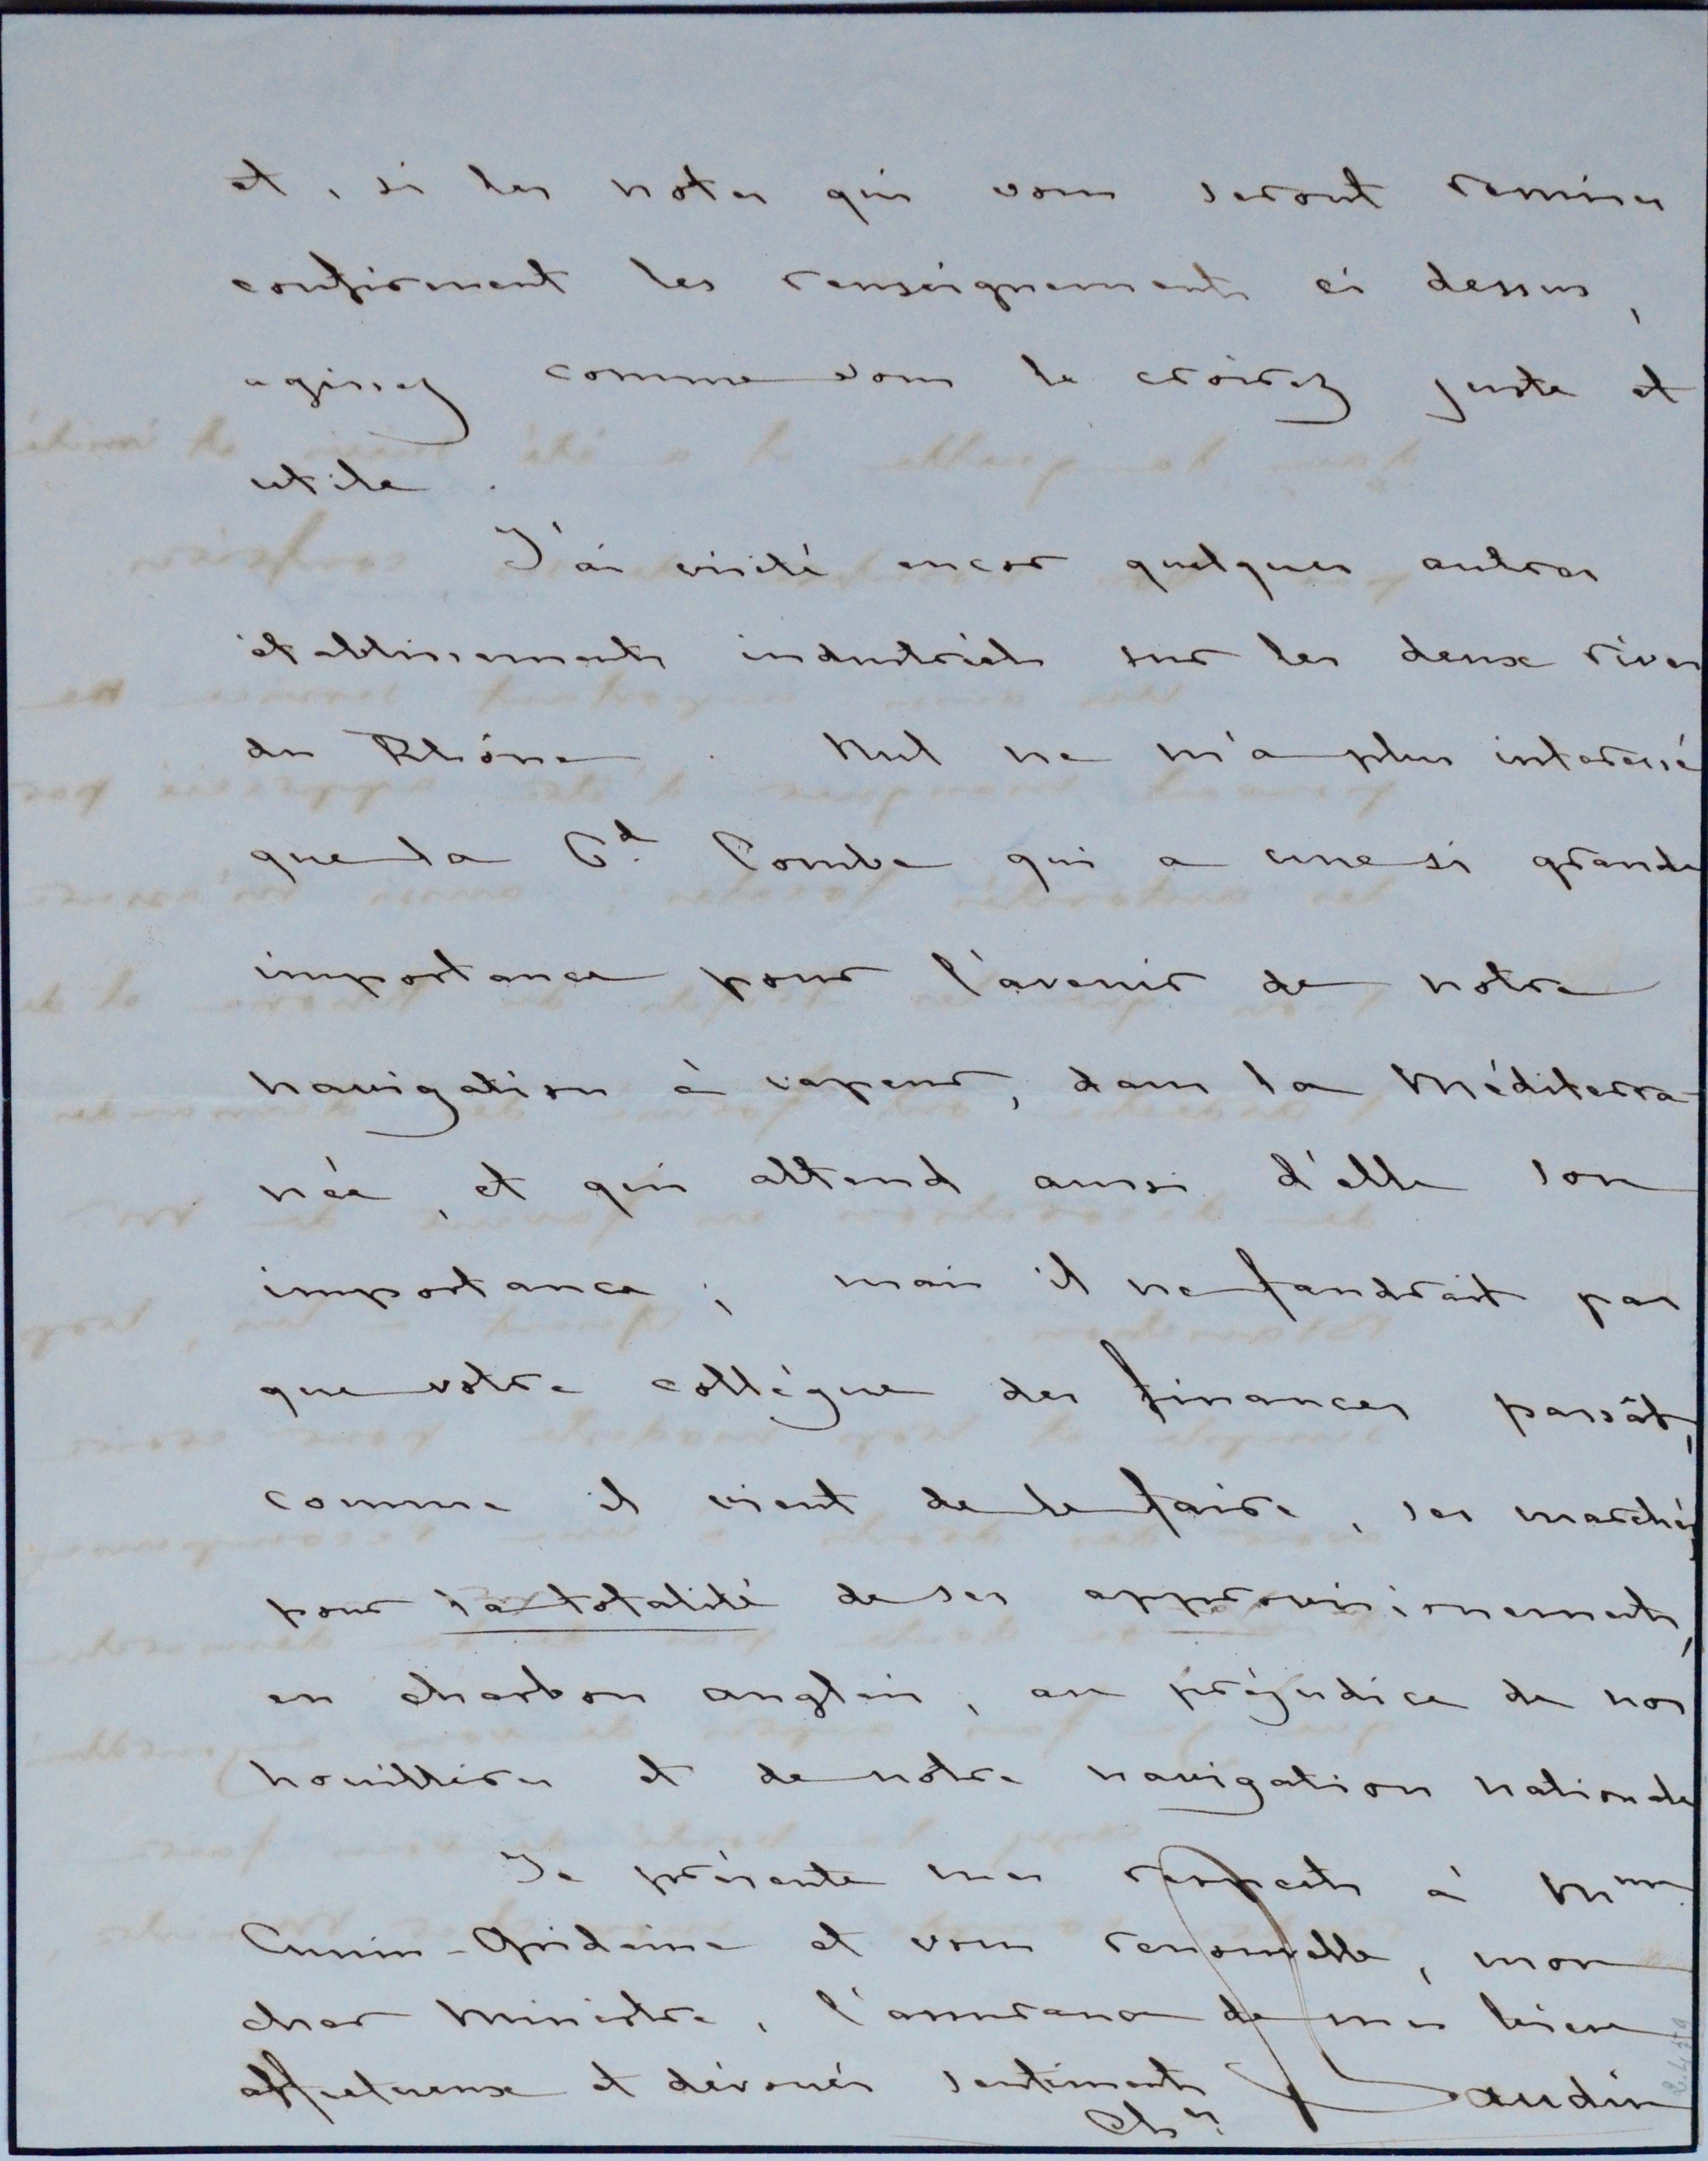 et, si les notes qui vous seront remises
confirment les renseignements ci dessus,
agissez comme vous le croirez juste et
utile.
J'ai visité encor quelques autres
établissements industriels sur les deux rives
du Rhône. Nul ne m'a plus interessé
que la Gd. Combe qui a une si grande
importance pour l'avenir de notre
navigation à vapeur, dans la Méditerra-
née, et qui attend aussi d'elle son
importance; mais il ne faudrait pas
que votre collègue des finances passât,
comme il vient de le faire, ses marchés,
pour la totalité de ses approvisionnements,
en charbon anglais, au préjudice de nos
houillères et de notre navigation nationale
Je présente mes respects à Mme.
Cunin-Gridaine et vous renouvelle, mon
cher Ministre, l'assurance de mes bien
affectueux et dévoués sentiments
Baudin